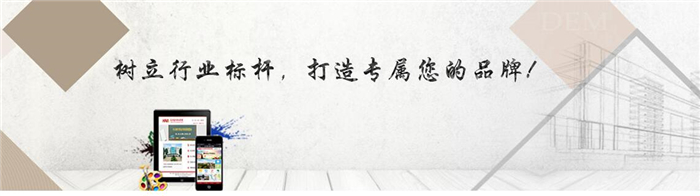 树立行业标杆，打造专属您的品牌！
DEM